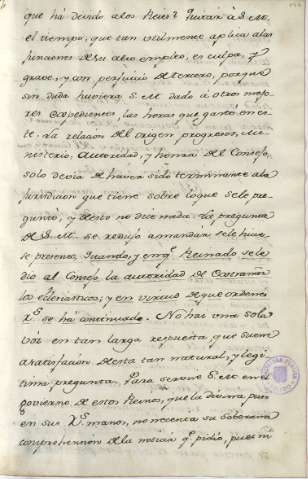 que ha debido a los Reies? Quitar a S. M.
el tiempo, que tan utilmente aplica a las
funciones de su alto empleo, es culpa, y
grave, y con perjuicio de tercero, porque
sin duda huviera S. M. dado á otros mejo
res expedientes, las horas que gastó en es-
te. La relacion del origen, progresos,
Ministerio, autoridad, y honra del Consejo,
solo devia de haver sido terminante a la
jurisdicion que tiene sobre lo que se le pre-
gunto, y de esto no dice nada. La pregunta
de S. M. se redujo a mandar se le hicie-
se presente, Quando, y en q.e Reinado se le
dio al Consejo la autoridad de
los ecclesiasticos, y en virtud de que ordenes
R.s se há continuado. No hai una sola
voz en tan larga respuesta, que suene
a satisfacion de esta tan natural, y legi-
tima, pregunta. Para servir S. M. en el
govierno de estos Reinos, que la divina puso
en sus R.s manos, necesita su Soberana
comprehension de la noticia q.e pidio, pues ni